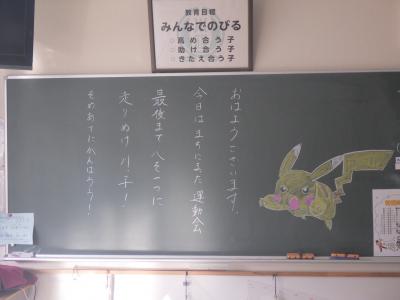 教育目標
みんなでのびる
○高め合う子
○助け合う子
○きたえ合う子
おはようございます。
今日はまちにまった運動会
最後まで心を一つに
走りぬけ川っ子!
そのあてにがんばろう!